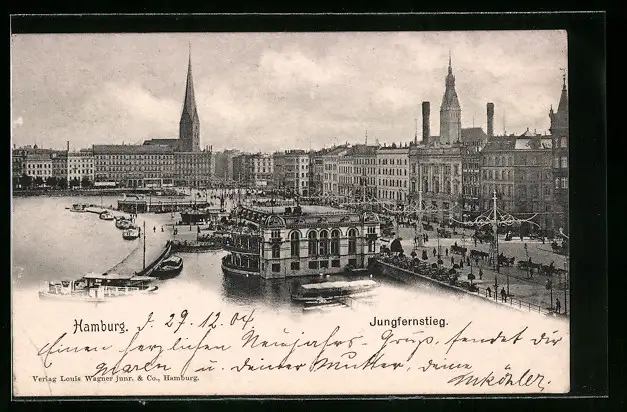 Hamburg. J. 29.12.04 Jungfernstieg.
Einen herzlichen Neujahrs-Gruß, sendet dir
u. deiner Mutter, deine
Verlag Louis Wagner junr. & Co., Hamburg.